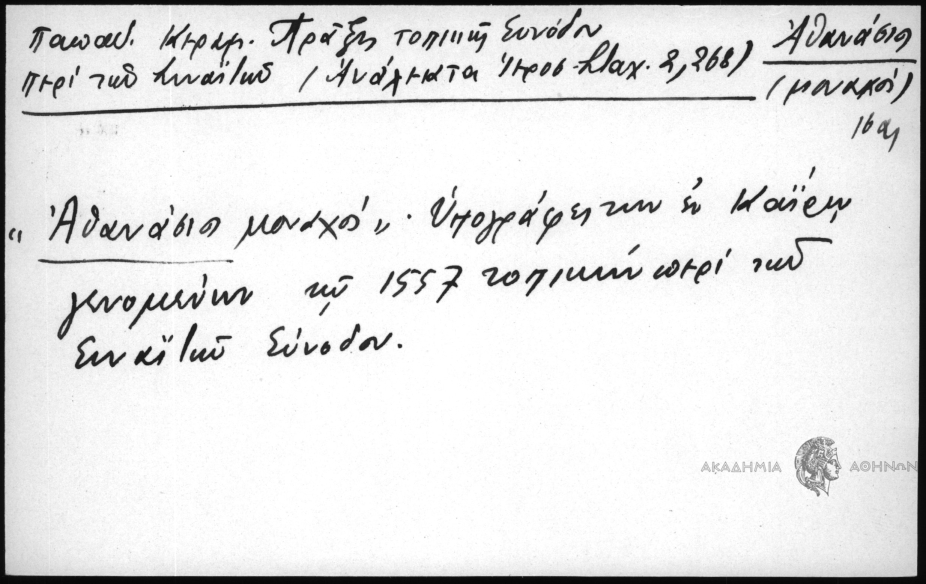 Παπαδ. Κεραμ. Πρᾶξις τοπικῆς Συνόδου
περὶ τῶν Σιναϊτῶν (Ἀνάλεκτα Ἱεροσ. Σταχ. 2, 268)
Ἀθανάσιος
(μοναχός)
16 αι
"Ἀθανάσιος μοναχός". Ὑπογράφει τὴν ἐν Καΐρῳ
γενομένην τῷ 1557 τοπικὴν περὶ τῶν
Σιναϊτῶν Σύνοδον.
ΑΚΑΔΗΜΙΑ ΑΘΗΝΩΝ